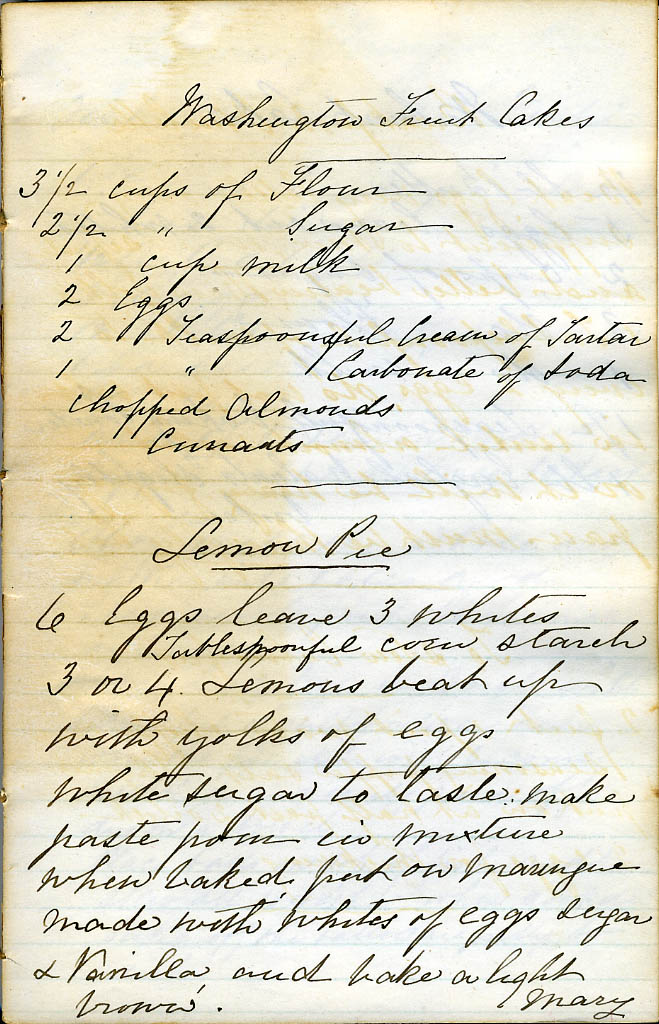 Washington Fruit Cakes
3 1/2 cups of Flour
2 1/2 " Sugar
1 cup milk
2 Eggs
2 Teaspoonsful Cream of Tartar
1 " Carbonate of Soda
chopped Almonds
Currants
Lemon Pie
6 Eggs leave 3 whites
Tablespoonful corn starch
3 or 4 Lemons beat up
with yolks of eggs
white sugar to taste. make
paste pour in mixture
when baked, put on Maringue
made with whites of eggs sugar
& Vanilla, and bake a light
brown.
Mary